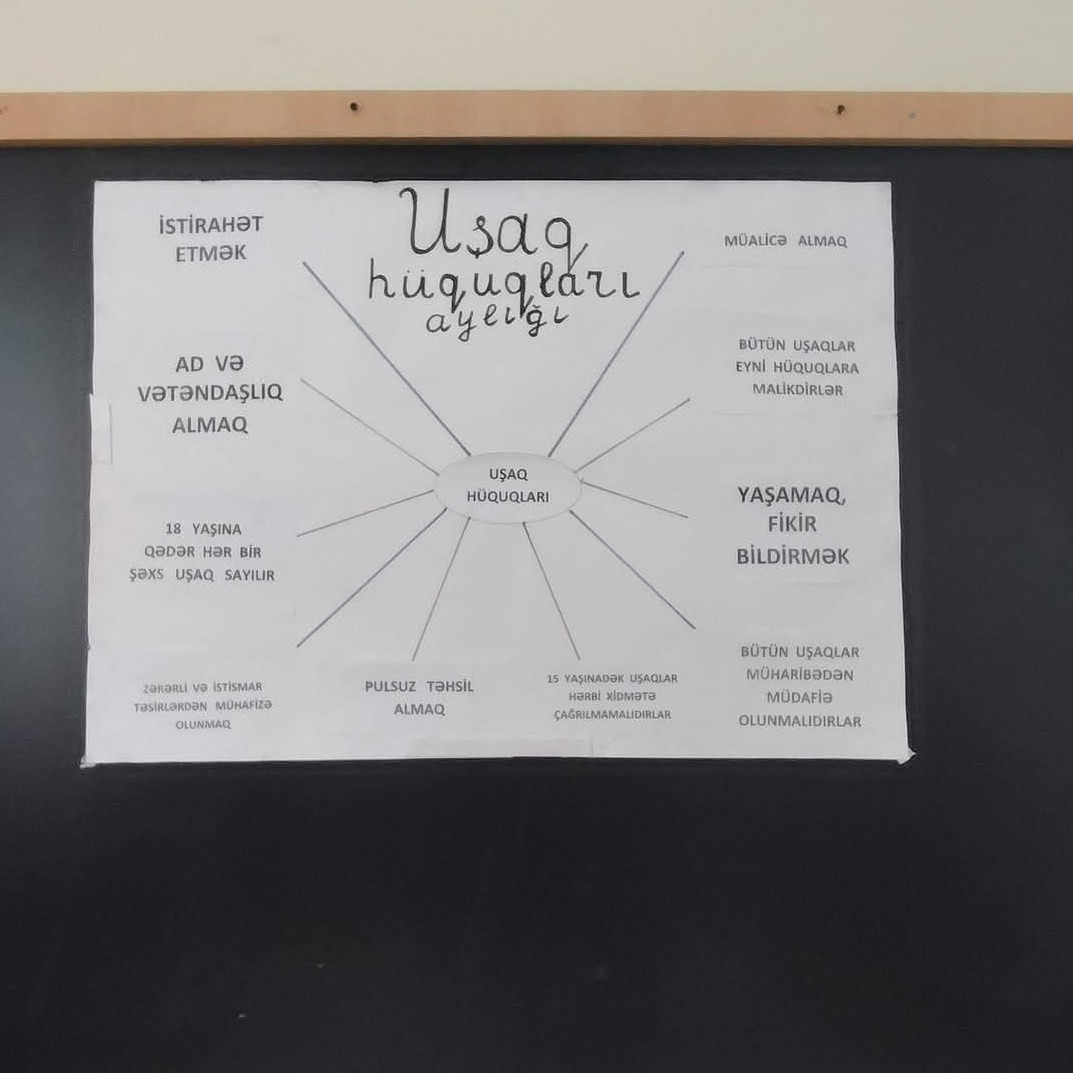 Uşaq
hüquqları
aylığı
İSTİRAHƏT
ETMƏK
AD VƏ
VƏTƏNDAŞLIQ
ALMAQ
18 YAŞINA
QƏDƏR HƏR BİR
ŞƏXS UŞAQ SAYILIR
ZƏRƏRLİ VƏ İSTİSMAR
TƏSİRLƏRDƏN MÜHAFİZƏ
OLUNMAQ
UŞAQ
HÜQUQLARI
PULSUZ TƏHSİL
ALMAQ
15 YAŞINADƏK UŞAQLAR
HƏRBİ XİDMƏTƏ
ÇAĞRILMAMALIDIRLAR
MÜALİCƏ ALMAQ
BÜTÜN UŞAQLAR
EYNİ HÜQUQLARA
MALİKDİRLƏR
YAŞAMAQ,
FİKİR
BİLDİRMƏK
BÜTÜN UŞAQLAR
MÜHARİBƏDƏN
MÜDAFİƏ
OLUNMALIDIRLAR